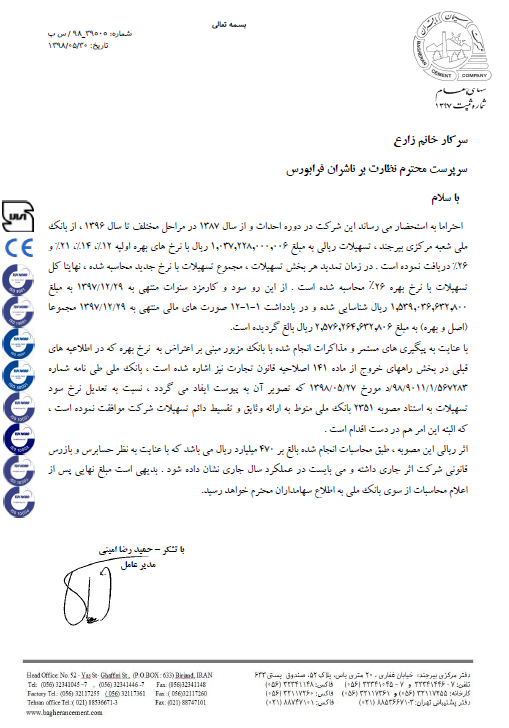 بسمه تعالی
شماره: ۳۹۵۰۵_۹۸ / س ب
تاریخ: ۱۳۹۸/۰۵/۳۰
BAGHERAN CEMENT COMPANY
سهامی عام
شماره ثبت ۱۳۹۷
سرکار خانم زارع
سرپرست محترم نظارت بر ناشران فرابورس
با سلام
احتراما به استحضار می رساند این شرکت در دوره احداث و از سال ۱۳۸۷ در مراحل مختلف تا سال ۱۳۹۶ ، از بانک
ملی شعبه مرکزی بیرجند ، تسهیلات ریالی به مبلغ ۱,۰۳۷,۲۲۸,۰۰۰,۰۰۶ ریال با نرخ های بهره اولیه ۱۲٪، ۱۴٪، ۲۱٪ و
۲۶٪ دریافت نموده است . در زمان تمدید هر بخش تسهیلات ، مجموع تسهیلات با نرخ جدید محاسبه شده ، نهایتا کل
تسهیلات با نرخ بهره ۲۶٪ محاسبه شده است . از این رو سود و کارمزد سنوات منتهی به ۱۳۹۷/۱۲/۲۹ به مبلغ
۱,۵۳۹,۰۳۶,۶۳۲,۸۰۰ ریال شناسایی شده و در یادداشت ۱-۱-۱۲ صورت های مالی منتهی به ۱۳۹۷/۱۲/۲۹ مجموعا
(اصل و بهره) به مبلغ ۲,۵۷۶,۲۶۴,۶۳۲,۸۰۶ ریال بالغ گردیده است.
با عنایت به پیگیری های مستمر و مذاکرات انجام شده با بانک مزبور مبنی بر اعتراض به نرخ بهره که در اطلاعیه های
قبلی در بخش راههای خروج از ماده ۱۴۱ اصلاحیه قانون تجارت نیز اشاره شده است ، بانک ملی طی نامه شماره
۹۸/۹۰۱۱/۱/۵۶۷۲۸۳/د مورخ ۱۳۹۸/۰۵/۲۷ که تصویر آن به پیوست ایفاد می گردد ، نسبت به تعدیل نرخ سود
تسهیلات به استناد مصوبه ۲۳۵۱ بانک ملی منوط به ارائه وثایق و تقسیط دائم تسهیلات شرکت موافقت نموده است ،
که البته این امر هم در دست اقدام است .
اثر ریالی این مصوبه ، طبق محاسبات انجام شده بالغ بر ۴۷۰ میلیارد ریال می باشد که با عنایت به نظر حسابرس و بازرس
قانونی شرکت اثر جاری داشته و می بایست در عملکرد سال جاری نشان داده شود . بدیهی است مبلغ نهایی پس از
اعلام محاسبات از سوی بانک ملی به اطلاع سهامداران محترم خواهد رسید.
با تشکر – حمید رضا امینی
مدیر عامل
دفتر مرکزی بیرجند: خیابان غفاری ، ۲۰ متری یاس، پلاک ۵۲، صندوق پستی ۶۳۳
تلفن: ۷ - ۳۲۳۴۱۴۴۶ و ۷ - ۳۲۳۴۱۰۴۵ (۰۵۶) فاکس: ۳۲۳۴۱۱۴۸ (۰۵۶)
کارخانه: ۳۲۱۱۷۲۵۵ (۰۵۶) و ۳۲۱۱۷۳۶۱ (۰۵۶) فاکس: ۳۲۱۱۷۲۶۰ (۰۵۶)
دفتر پشتیبانی تهران: ۳-۸۸۵۳۶۶۷۱ (۰۲۱) فاکس: ۸۸۷۴۷۱۰۱ (۰۲۱)
Head Office: No. 52 - Yas St- Ghaffari St., (P.O.BOX : 633) Birjand, IRAN
Tel: (056) 32341045 -7 , (056) 32341446 -7 Fax: (056)32341148
Factory Tel.: (056) 32117255 , (056) 32117361 Fax: (056) 32117260
Tehran office Tel: ( 021) 88536671-3 Fax: (021) 88747101
www.bagherancement.com